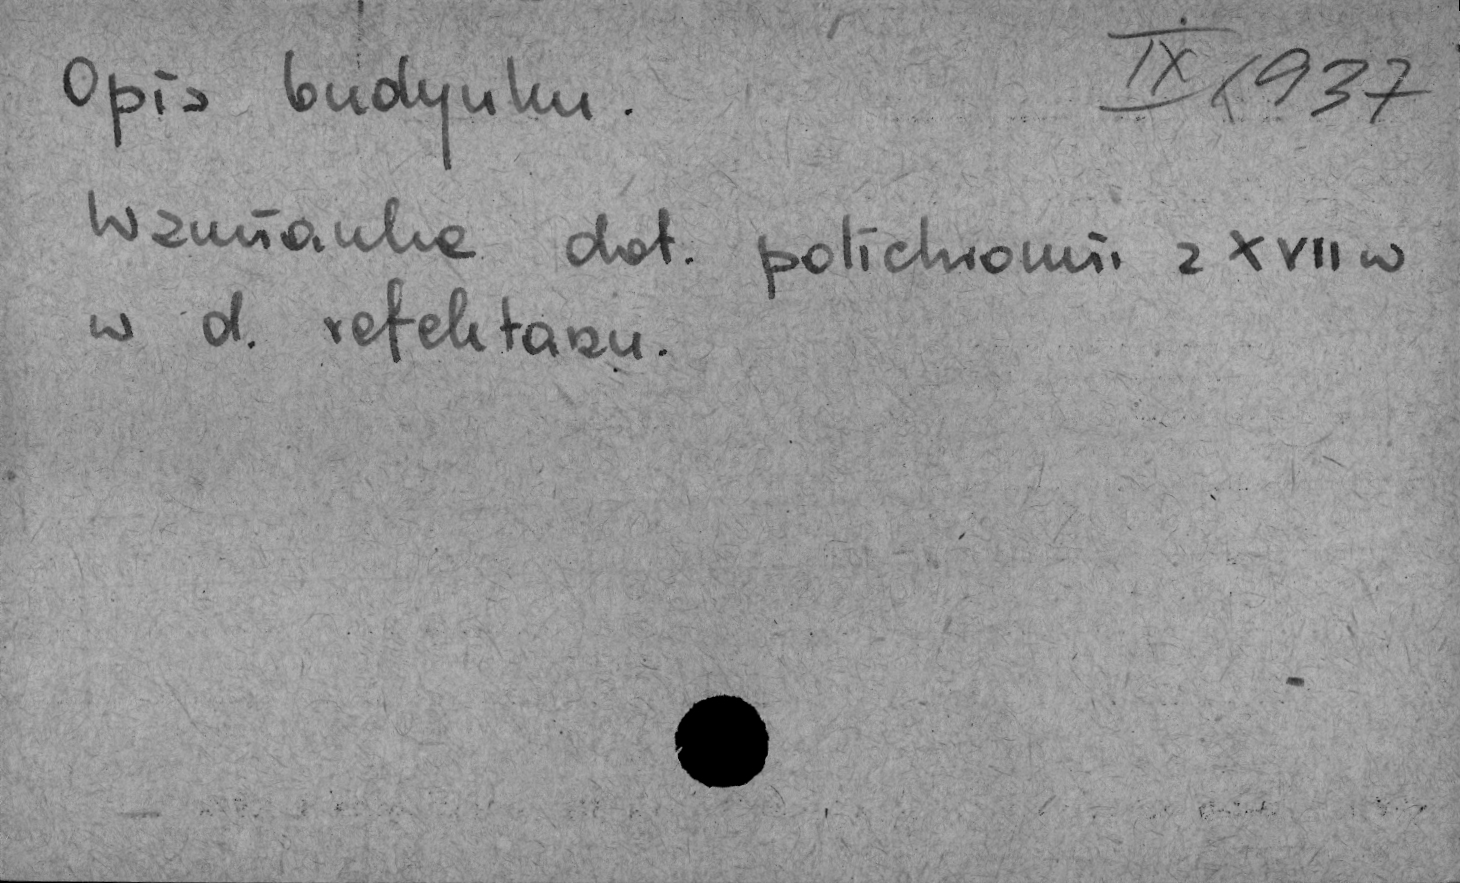 Opis budynku. IX/937
Wzmianka dot. polichromii z XVII w
w d. refektarzu.